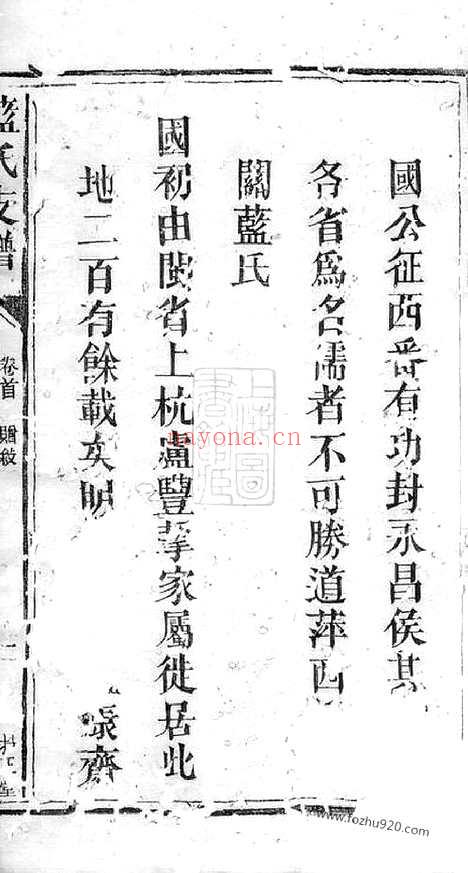 國公征西番有功封永昌侯其
各省爲名儒者不可勝道萍西
關藍氏
國初由閩省上杭盧豐挈家屬徙居此
地二百有餘載矣
齊
藍氏支譜
卷首
nayona.cn
www.fozhu920.com